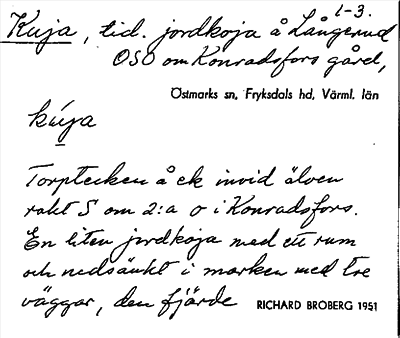 1-3.
Kuja, tid. jordkoja å Långerud
OSO om Konradsfors gård,
Östmarks sn, Fryksdals hd, Värml. län
kúja
Torptecken å ek invid älven
rakt S om 2:a o i Konradsfors.
En liten jordkoja med ett rum
och nedsänkt i marken med tre
väggar, den fjärde
RICHARD BROBERG 1951